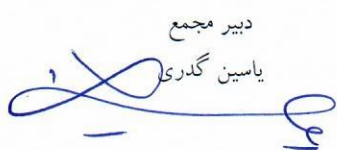 دبیر مجمع
یاسین گدری